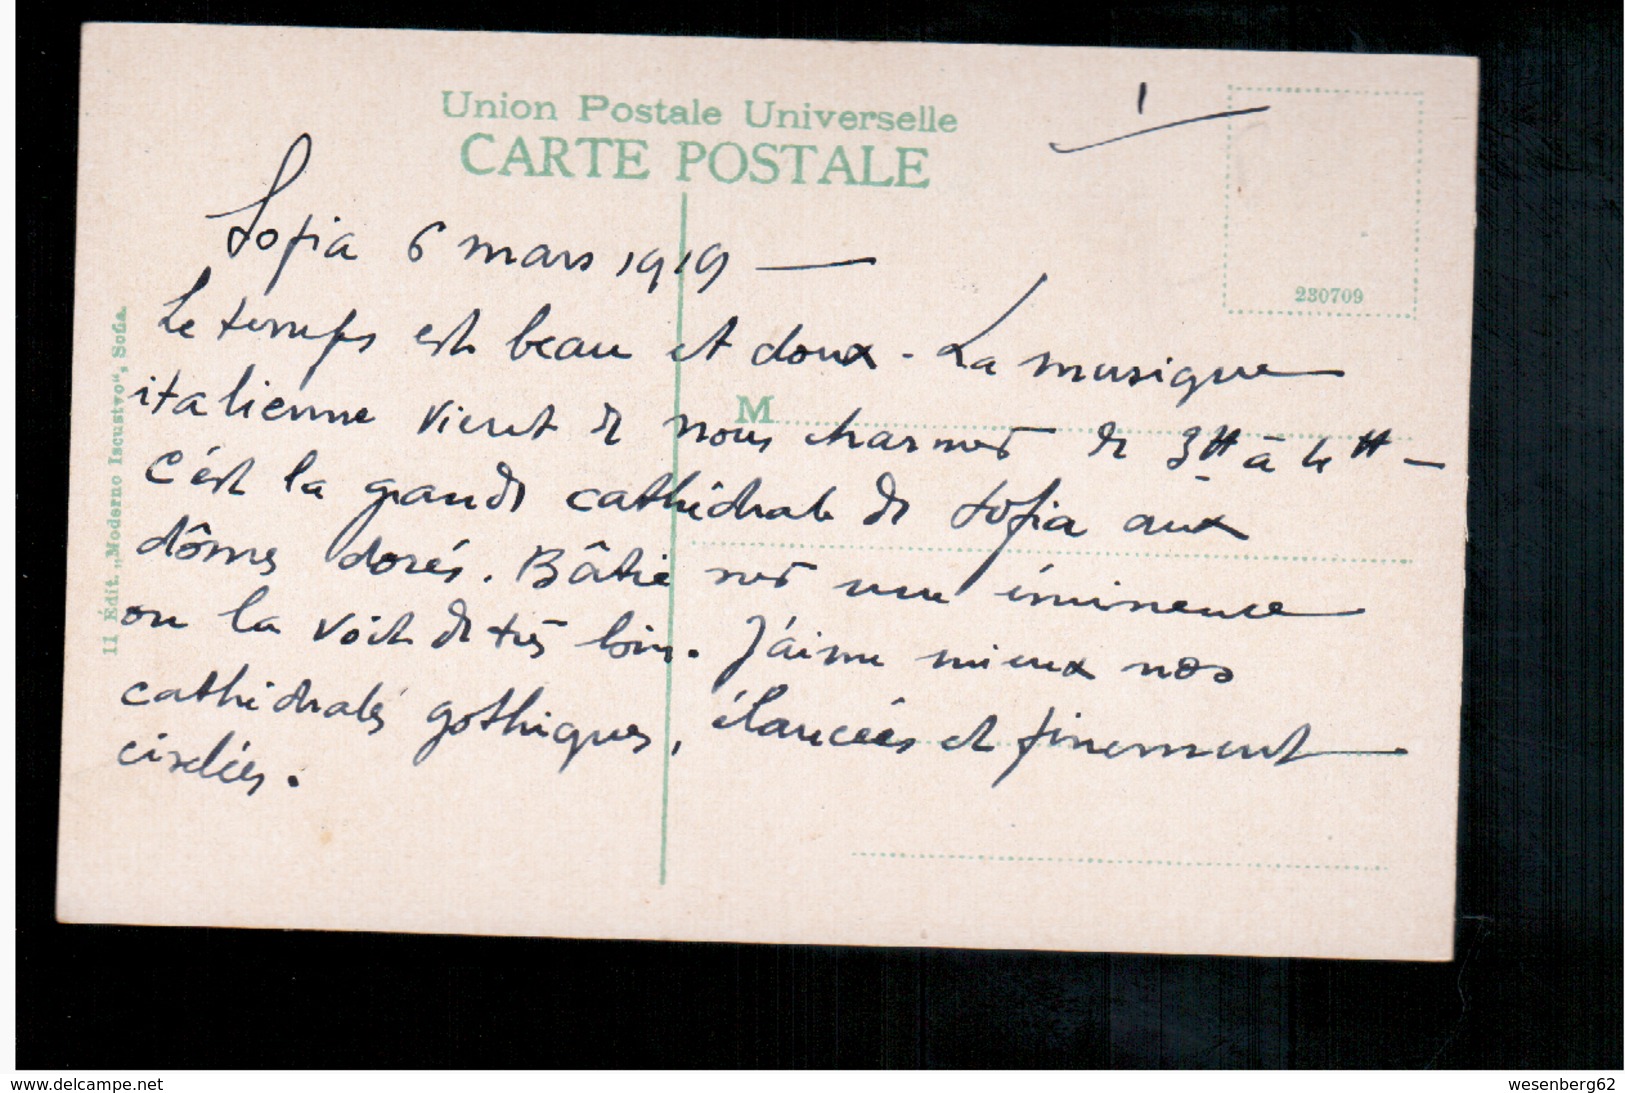 Union Postale Universelle
CARTE POSTALE
1
230709
Sofia 6 mars 1919 —
Le temps est beau et doux - La musique
italienne vient de nous charmer de 3H à 4H —
C'est la grande cathédrale de Sofia aux
dômes dorés. Bâtie sur une éminence
on la voit de très loin. J'aime mieux nos
cathédrales gothiques, élancées et finement
ciselées.
M
11 Édit. „Moderno Iscustvo“, Sofia.
www.delcampe.net
wesenberg62